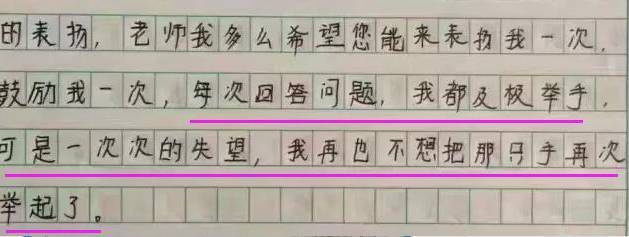 的表扬，老师我多么希望您能来表扬我一次，
鼓励我一次，每次回答问题，我都及极举手，
可是一次次的失望，我再也不想把那只手再次
举起了。